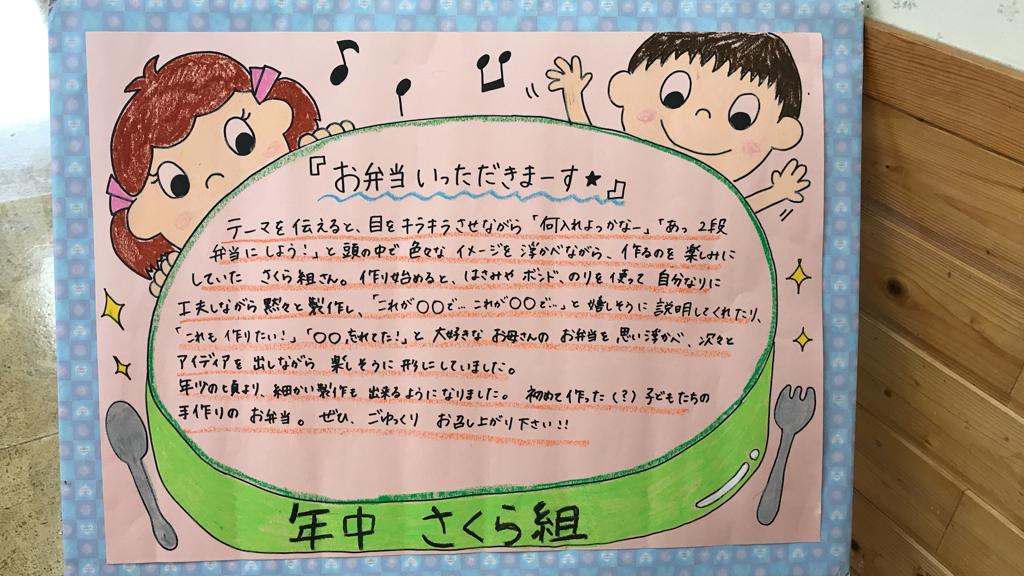 『お弁当いっただきまーす★』
テーマを伝えると、目をキラキラさせながら「何入れよっかなー」「あっ 2段
弁当にしよう!」と頭の中で 色々な イメージを 浮かべながら、作るのを 楽しみに
していた さくら組さん。作り始めると、はさみや ボンド、のりを使って 自分なりに
工夫しながら 黙々と 製作し、「これが〇〇で…これが〇〇で…」と 嬉しそうに 説明してくれたり、
「これも 作りたい!」「〇〇、忘れてた!」と 大好きな お母さんの お弁当を 思い浮かべ、次々と
アイデアを 出しながら 楽しそうに 形にしていました。
年少の頃より、細かい製作も 出来るようになりました。 初めて作った(?)子どもたちの
手作りの お弁当。 ぜひ、ごゆっくり お召し上がり下さい!!
年中 さくら組